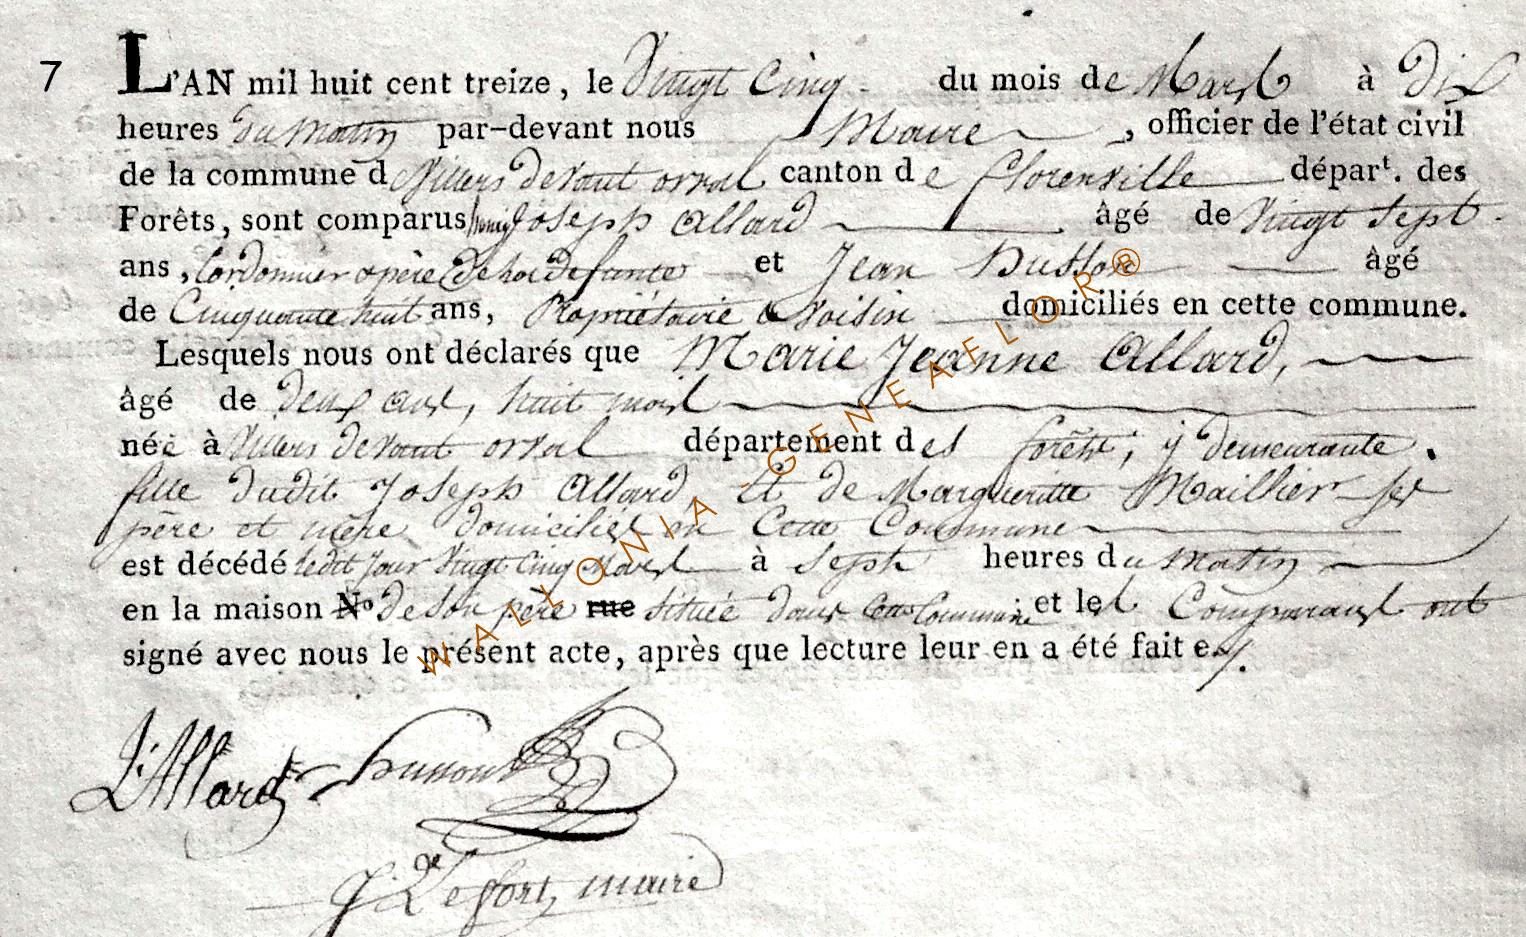 7 L'AN mil huit cent treize, le Vingt Cinq du mois de Mars à dix
heures du matin par-devant nous Maire, officier de l'état civil
de la commune d Villers devant orval canton de florenville dépar<sup>t</sup>. des
Forêts, sont comparus Joseph Allard âgé de vingt sept
ans, Cordonnier & père de la defunte et Jean âgé
de Cinquante huit ans, Propriétaire & voisin domiciliés en cette commune.
Lesquels nous ont déclarés que Marie Jeanne Allard,
âgé de deux ans, huit mois
née à Villers devant orval département des forêts, y demeurante.
fille dudit Joseph Allard Et de Margueritte Maillier ses
père et mère domiciliés en Cette Commune
est décédé ledit jour Vingt Cinq Mars à Sept heures du matin
en la maison N° de son père rue située dans Cette Commune et les Comparants ont
signé avec nous le présent acte, après que lecture leur en a été faite.
J. Allard
J. Lefort maire
WALLONIA-GENEAFLOR®